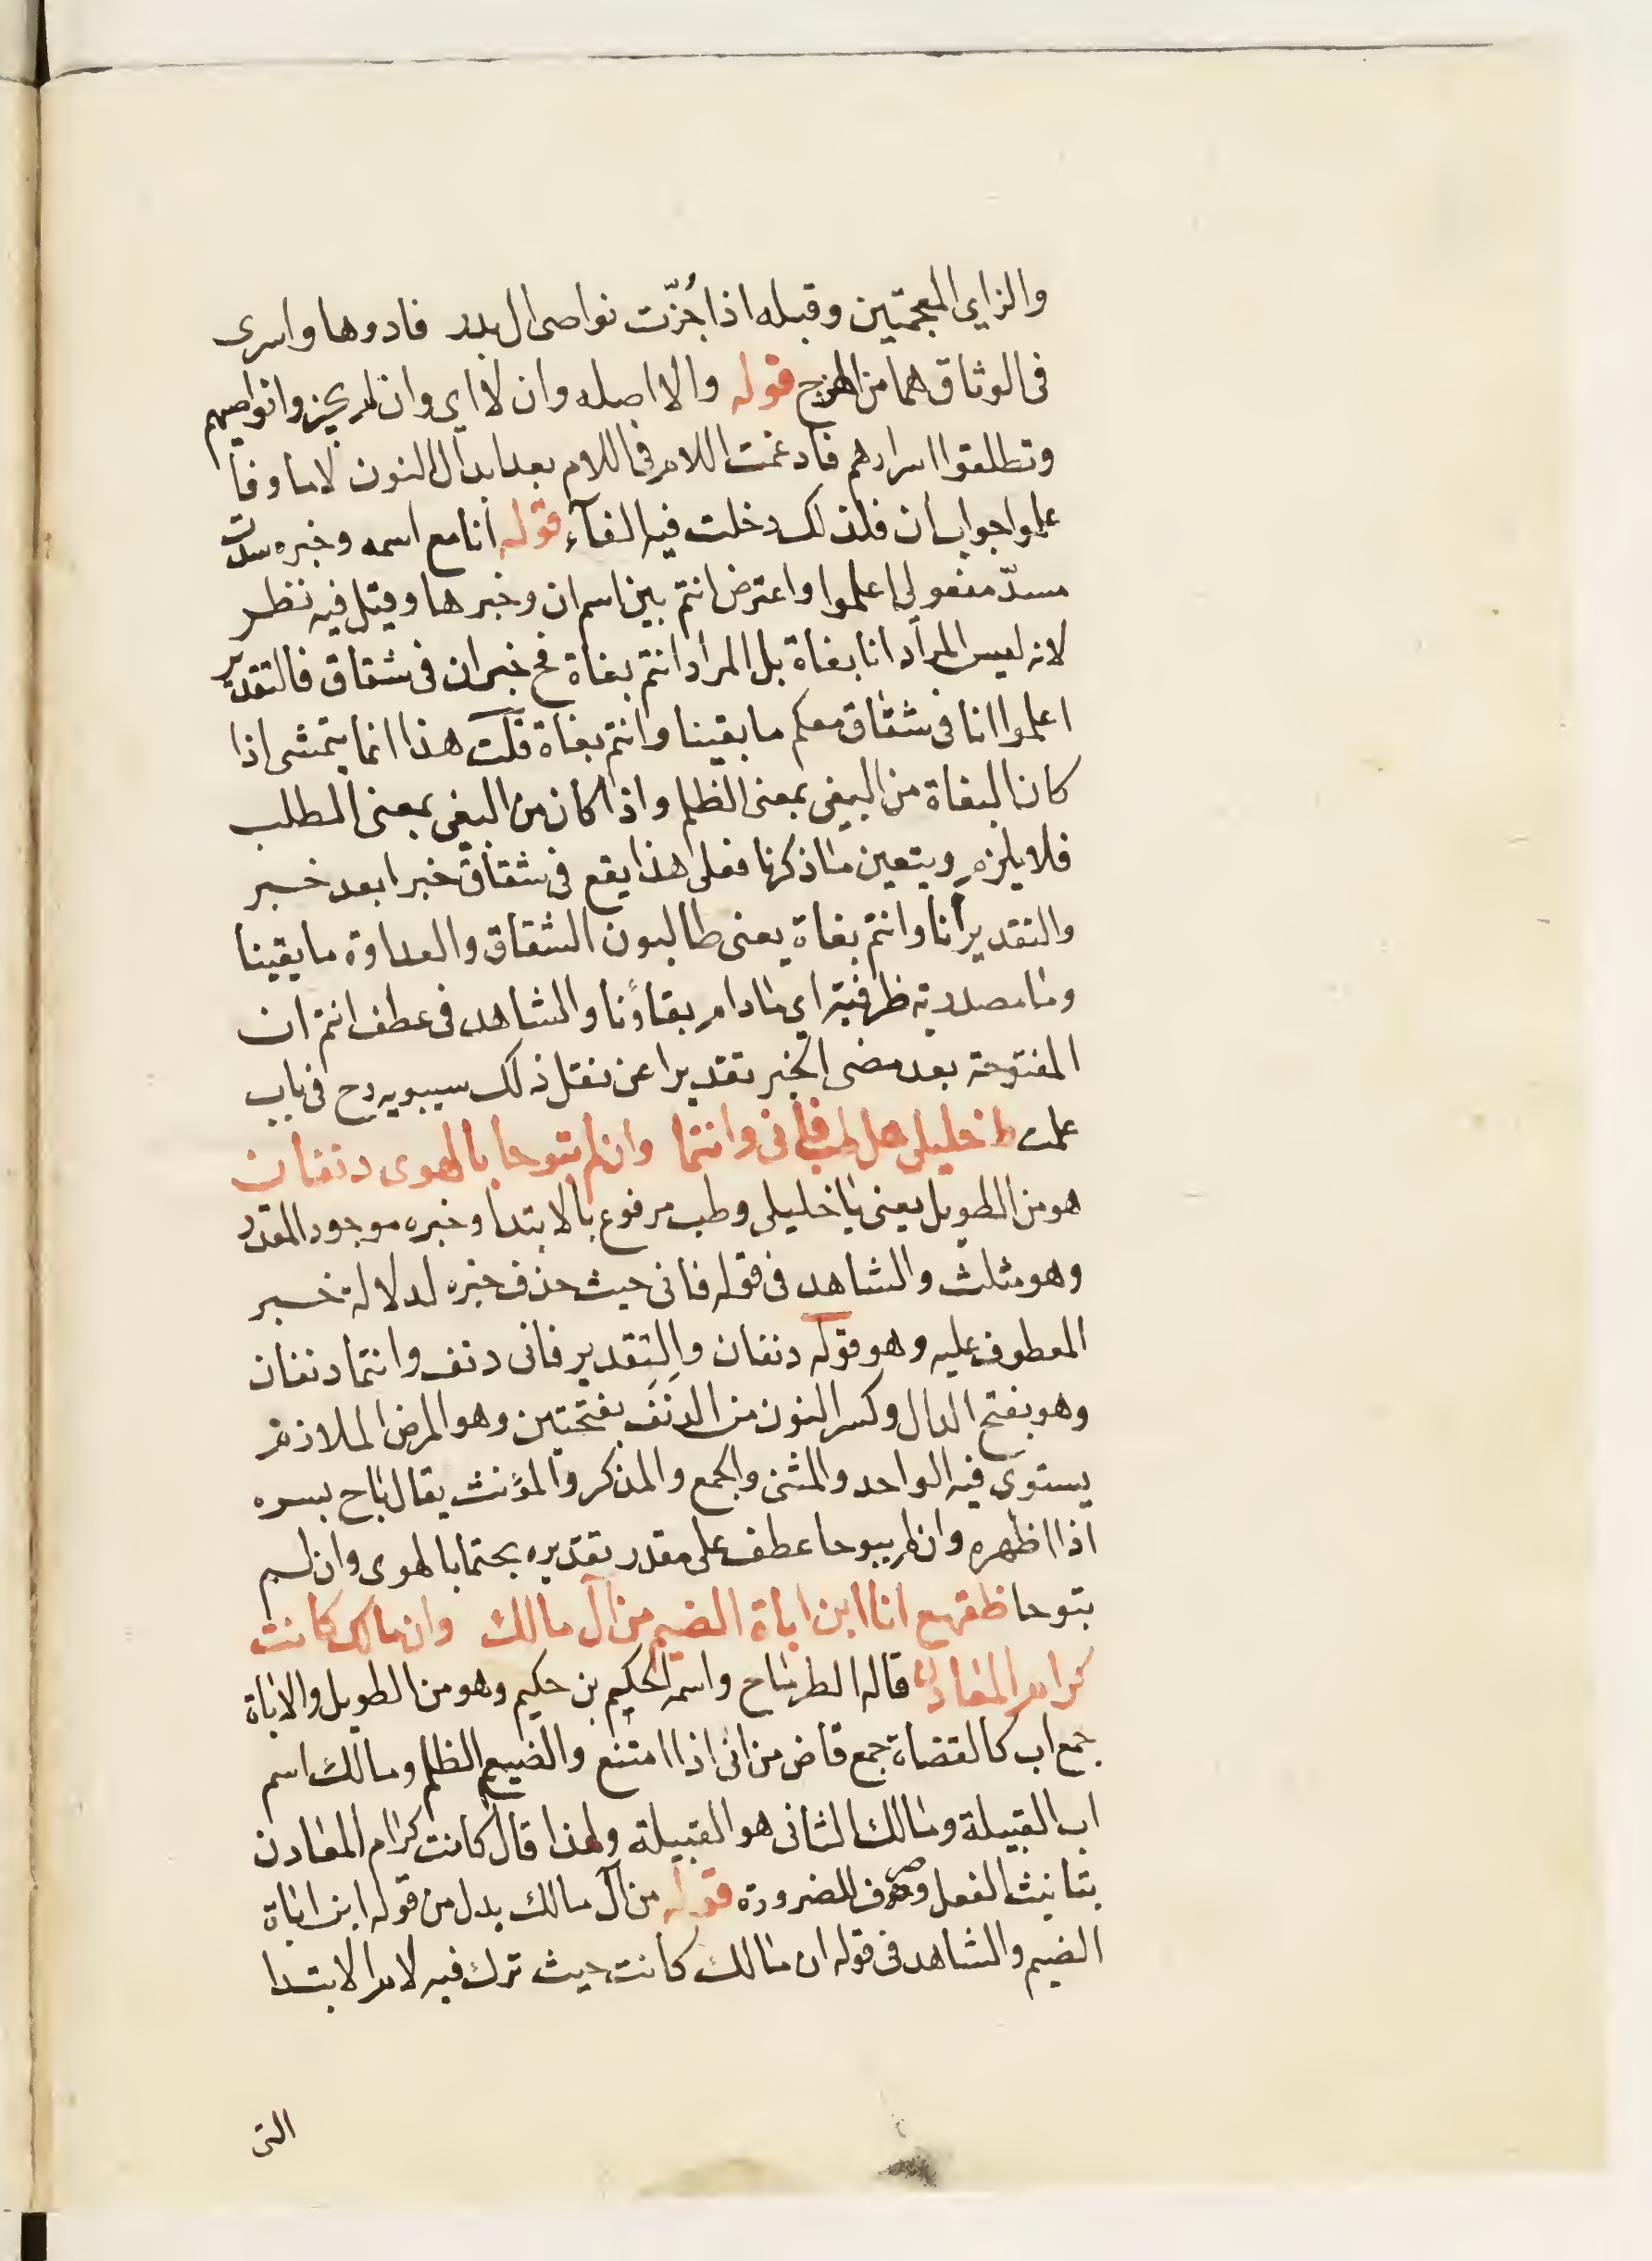 والزاي المعجمتين وقبله اذا جُزّت نواصى ال بدر فادوها واسرى
فى الوثاق هما من الهزج قوله والا اصله وان لا اي وان لم يجزوا نواصيهم
وتطلقوا اسرارهم فادغمت اللام فى اللام بعد ابدال النون لاما وفا
علموا جواب ان فلذلك دخلت فيه الفآء قوله انا مع اسمه وخبره سدت
مسدّ مفعولي اعلموا واعترض انتم بين اسم ان وخبرها وقيل فيه نظر
لانه ليس المراد انا بغاة بل المراد انتم بغاة فح خبر ان فى شقاق فالتقدير
اعلموا انا فى شقاق معكم ما بقينا وانتم بغاة قلت هذا انما يتمشى اذا
كان البغاة من البغى بمعنى الظلم واذا كان من البغى بمعنى المطلب
فلا يلزم ويتعين ما ذكرنا فعلى هذا يقع فى شقاق خبرا بعد خبر
والتقدير أنا وانتم بغاة يعنى طالبون الشقاق والعداوة ما بقينا
وما مصدرية ظرفية اي ما دام بقاؤنا والشاهد فى عطف انتم ان
المفتوحة بعد مضى الخبر تقديرا عن نقل ذلك سيبويه رح فى باب
علمت ط خليلى هل طب فانى وانتما وان لم تبوحا بالهوى دنفان
هو من الطويل يعنى يا خليلى وطب مرفوع بالابتدا وخبره موجود المقدر
وهو مثلث والشاهد فى قوله فانى حيث حذف خبره لدلالة خبر
المعطوف عليه وهو قوله دنفان والتقدير فانى دنف وانتما دنفان
وهو بفتح الدال وكسر النون من الدنف بفتحتين وهو المرض الملازم
يستوى فيه الواحد والمثنى والجمع والمذكر والمؤنث يقال باح بسره
اذا اظهره وان لم يبوحا عطف على مقدر تقديره بحتما بالهوى وان لم
بتوحا ظقهع انا ابن اباة الضيم من آل مالك وان مالك كانت
كرام المعادن قاله الطرماح واسمه الحكيم بن حكيم وهو من الطويل والاباة
جمع اب كالقضاة جمع قاض من ابى اذا امتنع والضيم الظلم ومالك اسم
اب القبيلة ومالك الثانى هو القبيلة ولهذا قال كانت كرام المعادن
بتانيث الفعل وصرف للضرورة قوله من آل مالك بدل من قوله ابن اباة
الضيم والشاهد فى قوله ان مالك كانت حيث ترك فيه لام الابتدا
التى